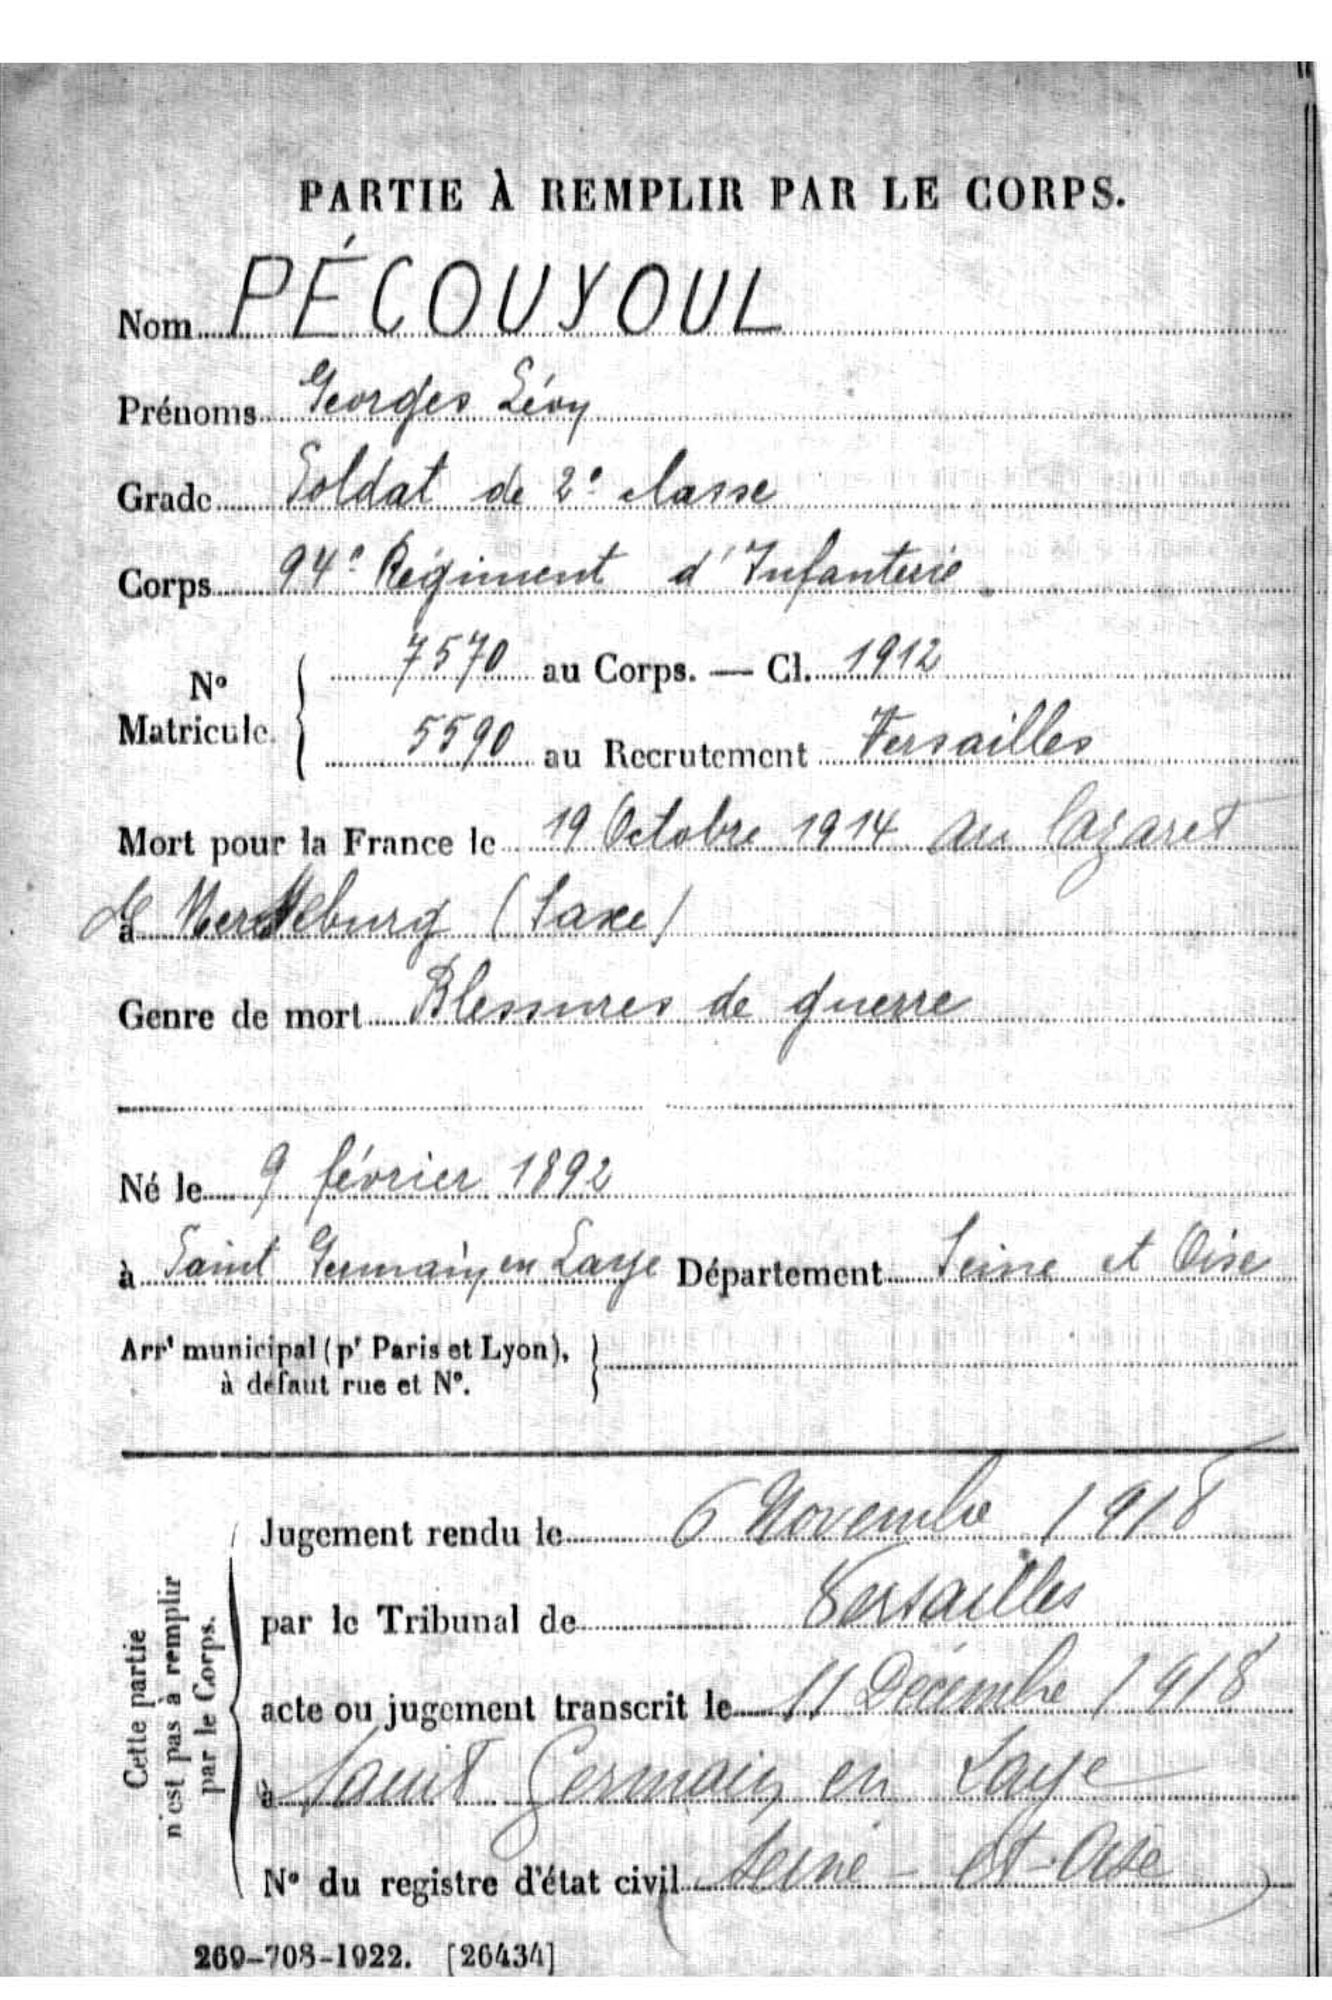 PARTIE À REMPLIR PAR LE CORPS.
Nom PÉCOUYOUL
Prénoms Georges Lévy
Grade Soldat de 2e classe
Corps 94e Régiment d'Infanterie
N° Matricule. { 7570 au Corps. — Cl. 1912
5590 au Recrutement Versailles
Mort pour la France le 19 Octobre 1914 au lazaret
à de Merseburg (Saxe)
Genre de mort Blessures de guerre
Né le 9 février 1892
à Saint Germain en Laye Département Seine et Oise
Arrt municipal (pr Paris et Lyon), }
à défaut rue et N°.
Cette partie
n'est pas à remplir
par le Corps.
Jugement rendu le 6 Novembre 1918
par le Tribunal de Versailles
acte ou jugement transcrit le 11 Décembre 1918
à Saint Germain en Laye
N° du registre d'état civil (Seine-et-Oise)
269-708-1922. [26434]